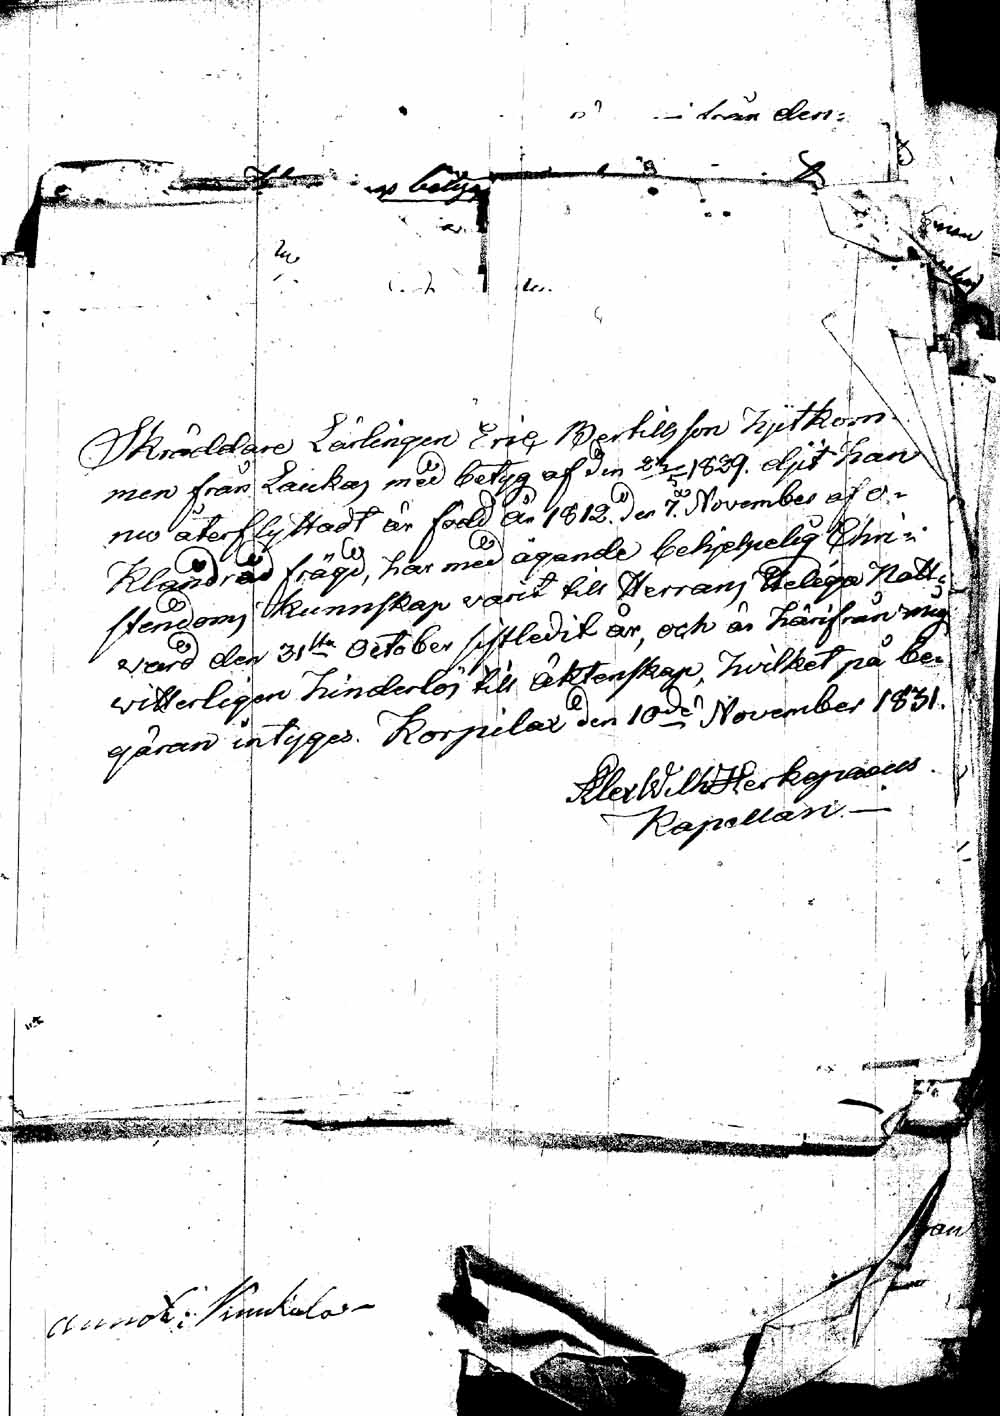 från den
betyg
Skräddare Lärlingen Eric Bertillsson hjitkom-
men från Laukas med betyg af den 22/5 1829. djit han
nu återflyttadt är född år 1812 den 7de November af o-
klandrad frägd, har med ägande behjelpelig Chri-
stendoms kunnskap varit till Herrans Heliga Natt-
vard den 31sta October sistledit år, och är härifrån mig
vitterligen hinderlös till äktenskap, hvilket på be-
gäran intyges. Korpilax den 10de November 1831.
Alex Wilh Herkepaeus.
Kapellan.—
annot: